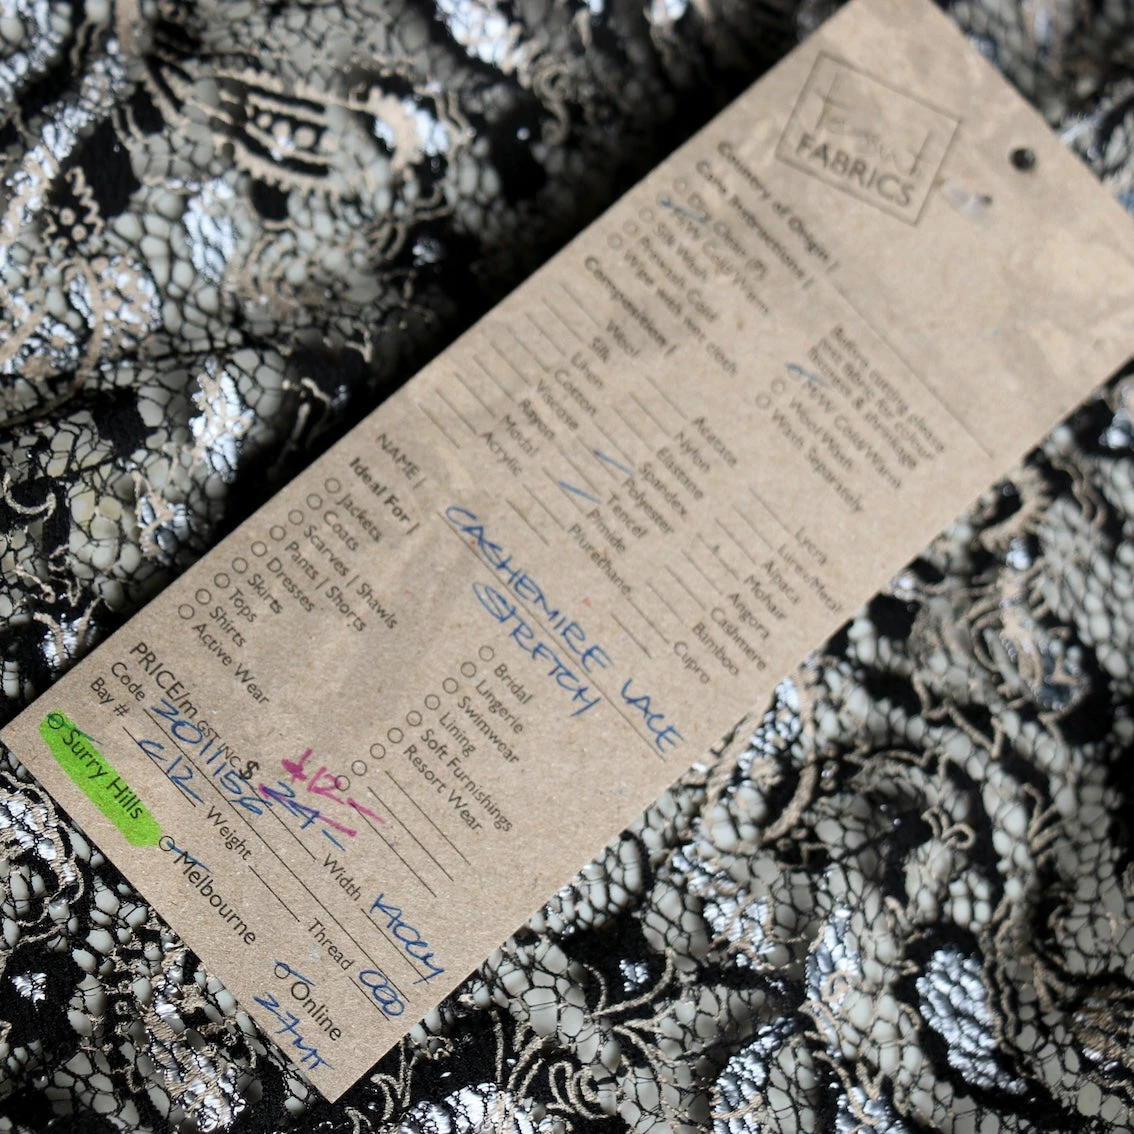 FABRICS
Country of Origin |
Care Instructions |
Dry Clean (P)
M/W Cold/Warm
Silk Wash
Prewash Cold
Wipe with wet cloth
Before cutting please
H/W Cold/Warm
Wool Wash
Wash Separately
Composition |
Wool
Silk
Linen
Cotton
Viscose
Rayon
Modal
Acrylic
Acetate
Nylon
Elastane
Spandex
Polyester
Tencel
Pinide
Plurethane
Lycra
Lurex/Metal
Alpaca
Mohair
Angora
Cashmere
Bamboo
Cupro
NAME | CASHEMIRE LACE
STRETCH
Ideal For |
Jackets
Coats
Scarves | Shawls
Pants | Shorts
Dresses
Skirts
Tops
Shirts
Active Wear
Bridal
Lingerie
Swimwear
Lining
Soft Furnishings
Resort Wear
12-
PRICE/m GST INC $ 24-
Width
Code
Thread
Bay # C12 Weight
Surry Hills Melbourne Online
27MT